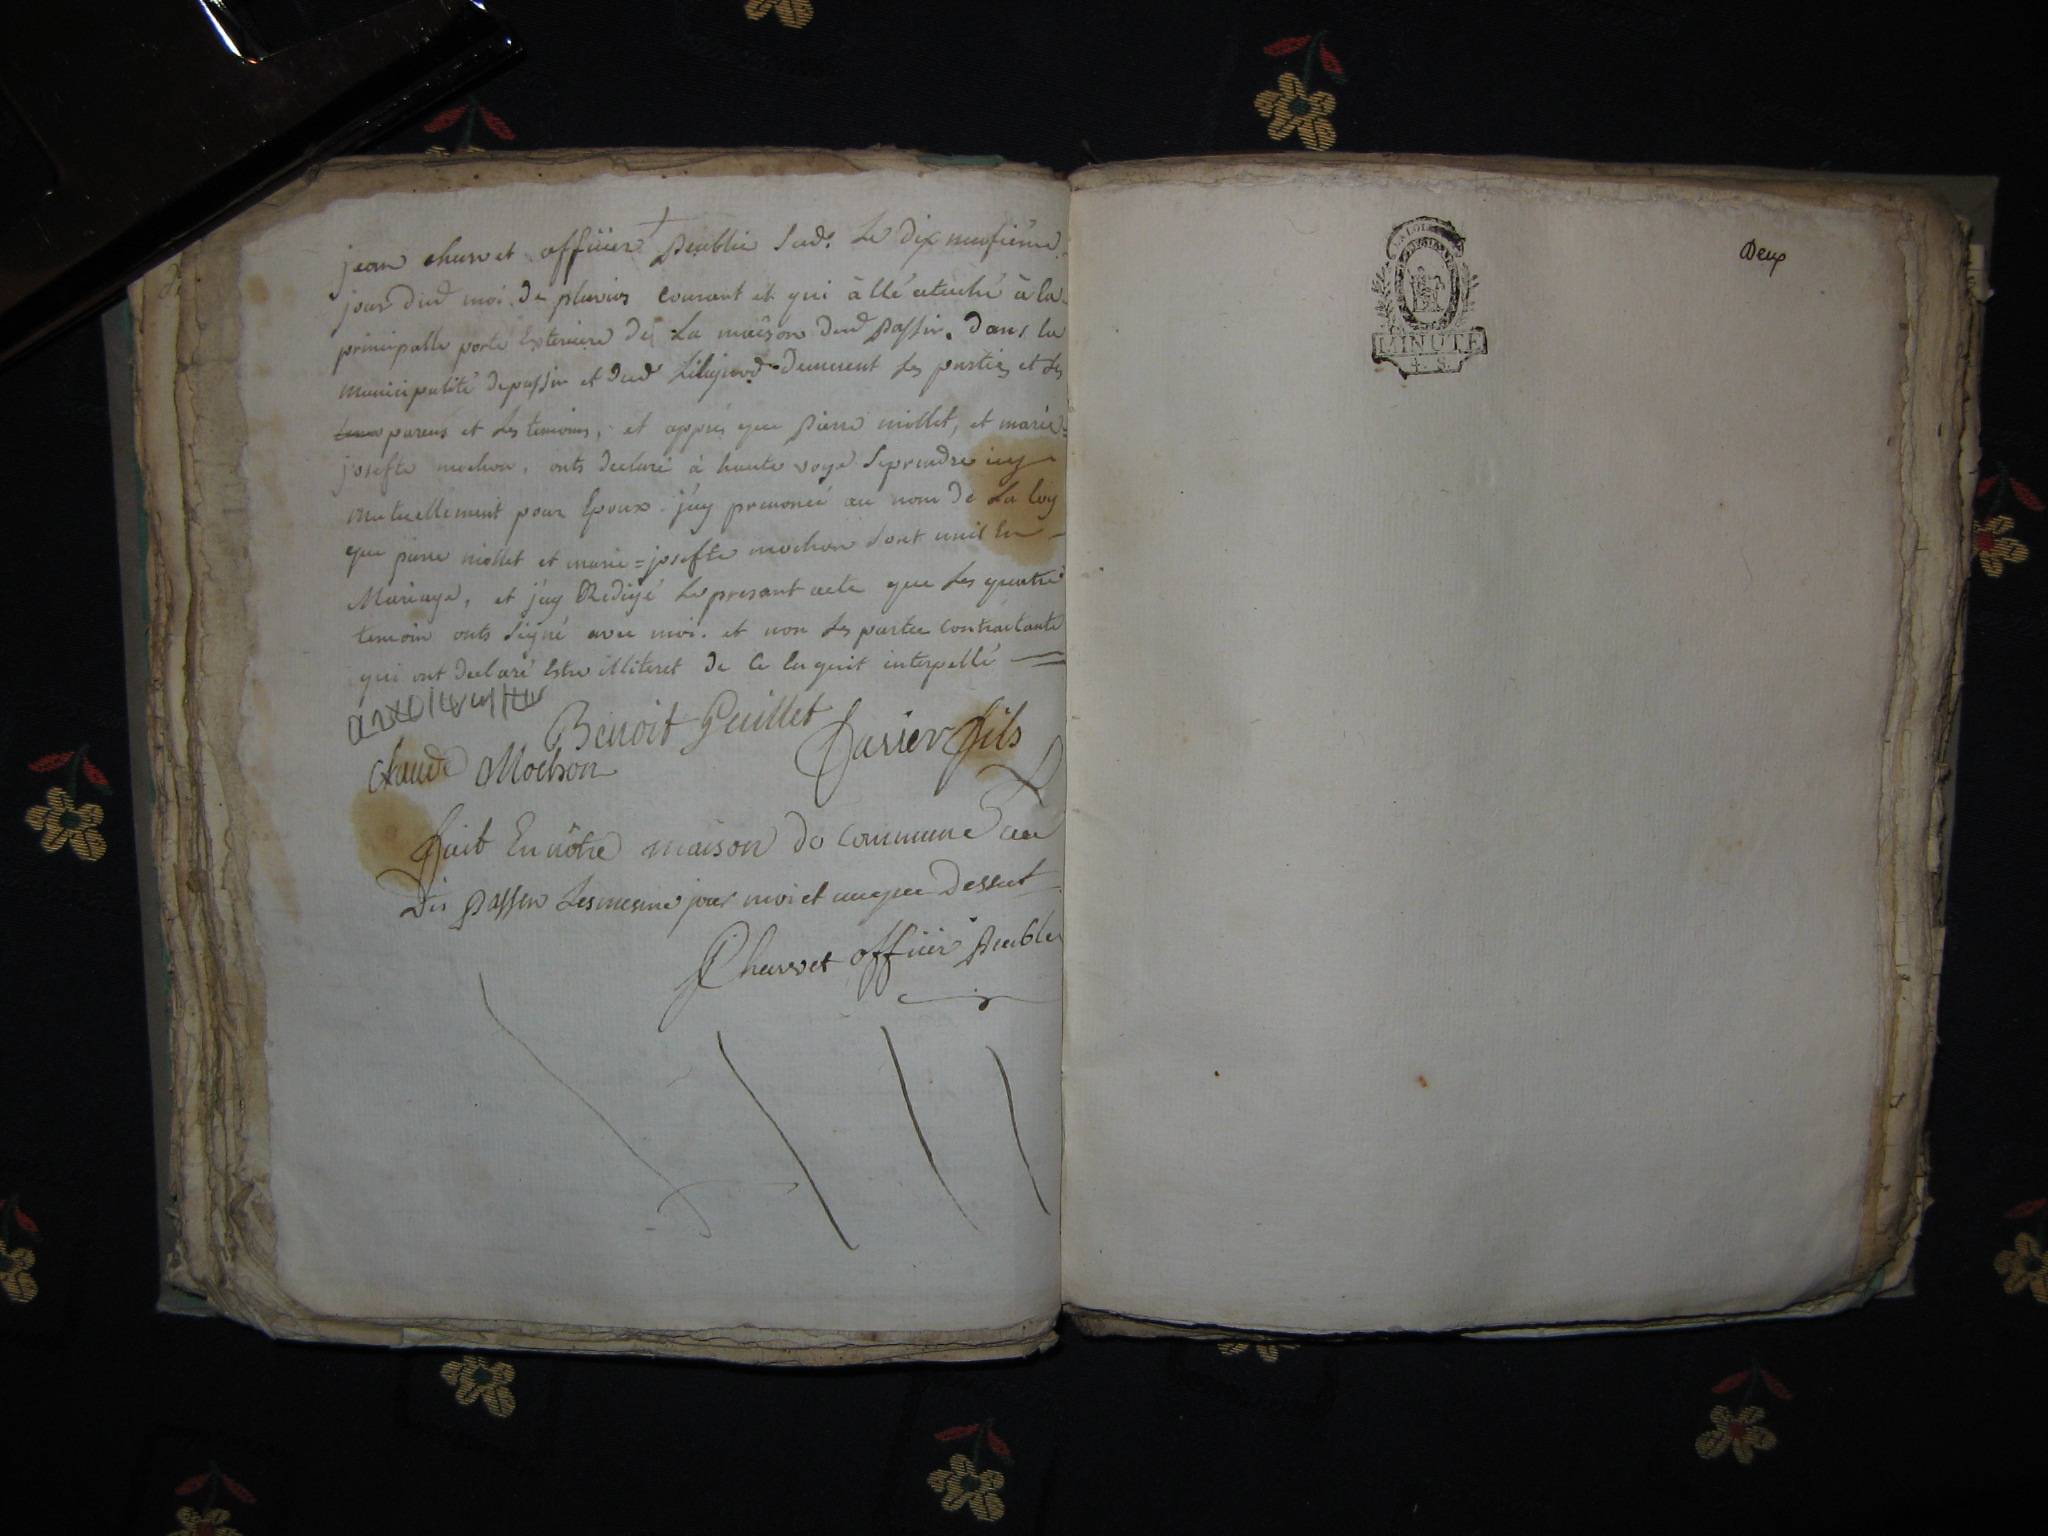 jean charvet officier publie Sud. Le dix neufieme
jour dud moi de pluvios courant et qui à llé ataché à la
principalle porte Exterieure de La maison dud passin. dans la
municipalité de passin et dud demeurent les parties et les
parens et les temoins, et apprés que pierre miollet, et marie=
josefte mochon, onts declaré à haute voye se prendre icy
mutuellement pour Epoux. j'ay prononcé au nom de La loy
que pierre miollet et marie=josefte mochon sont unis En
Mariage, et j'ay Redigé Le presant acte que Les quatre
temoin onts signé avec moi. et non Les partee contractante
qui ont declaré Estre illiteret de Ce Enquit interpellé
Benoit Guillet
fils
Claude Mochon
fait En nôtre maison de commune au
Dis passin Les mesme jour moi et an que dessut
Charvet officier puble
Deux
LA LOI
MINUTE
4. S.